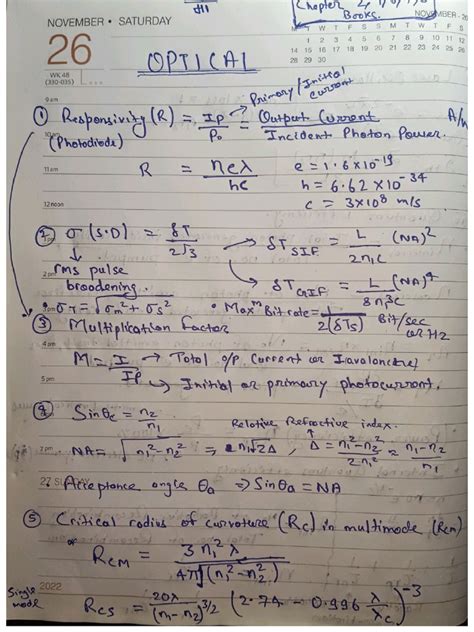 Chapter 2,
Books.
NOVEMBER • SATURDAY
26
WK 48
(330-035)
NOVEMBER - 2022
M T W T F S S M T W T F S S
1 2 3 4 5 6 7 8 9 10 11 12 13
14 15 16 17 18 19 20 21 22 23 24 25 26 27
28 29 30
OPTICAL
9am
Primary/Initial current
① Responsivity (R) = Ip/Po = Output Current/Incident Photon Power. A/W
(Photodiode)
11am
R = ηeλ/hc
e = 1.6×10⁻¹⁹
h = 6.62×10⁻³⁴
c = 3×10⁸ m/s
12noon
② σ (S.D) = δT/2√3
→ δT_SIF = L/2n₁c (NA)²
→ δT_GIF = L/8n₁³c (NA)⁴
rms pulse broadening.
• σ_T = √(σm² + σs²)
• Max^m Bit rate = 1/2(δTs) Bit/sec or Hz
③ Multiplication Factor
4pm
M = I/Ip → Total o/p current or Iavalanche)
↳ Initial or primary photocurrent.
5pm
④ Sinθc = n₂/n₁
Relative Refractive index.
NA = √(n₁² - n₂²) ⇒ n₁√2Δ, Δ = n₁² - n₂²/2n₁² ≈ n₁ - n₂/n₁
27 SUNDAY
• Acceptance angle θa ⇒ Sinθa = NA
⑤ Critical radius of curvature (Rc) in multimode (Rcm)
or
Rcm = 3n₁²λ/4π√(n₁² - n₂²)
2022
Single mode
Rcs = 20λ/(n₁ - n₂)^3/2 (2.74 - 0.996 λ/λc)⁻³